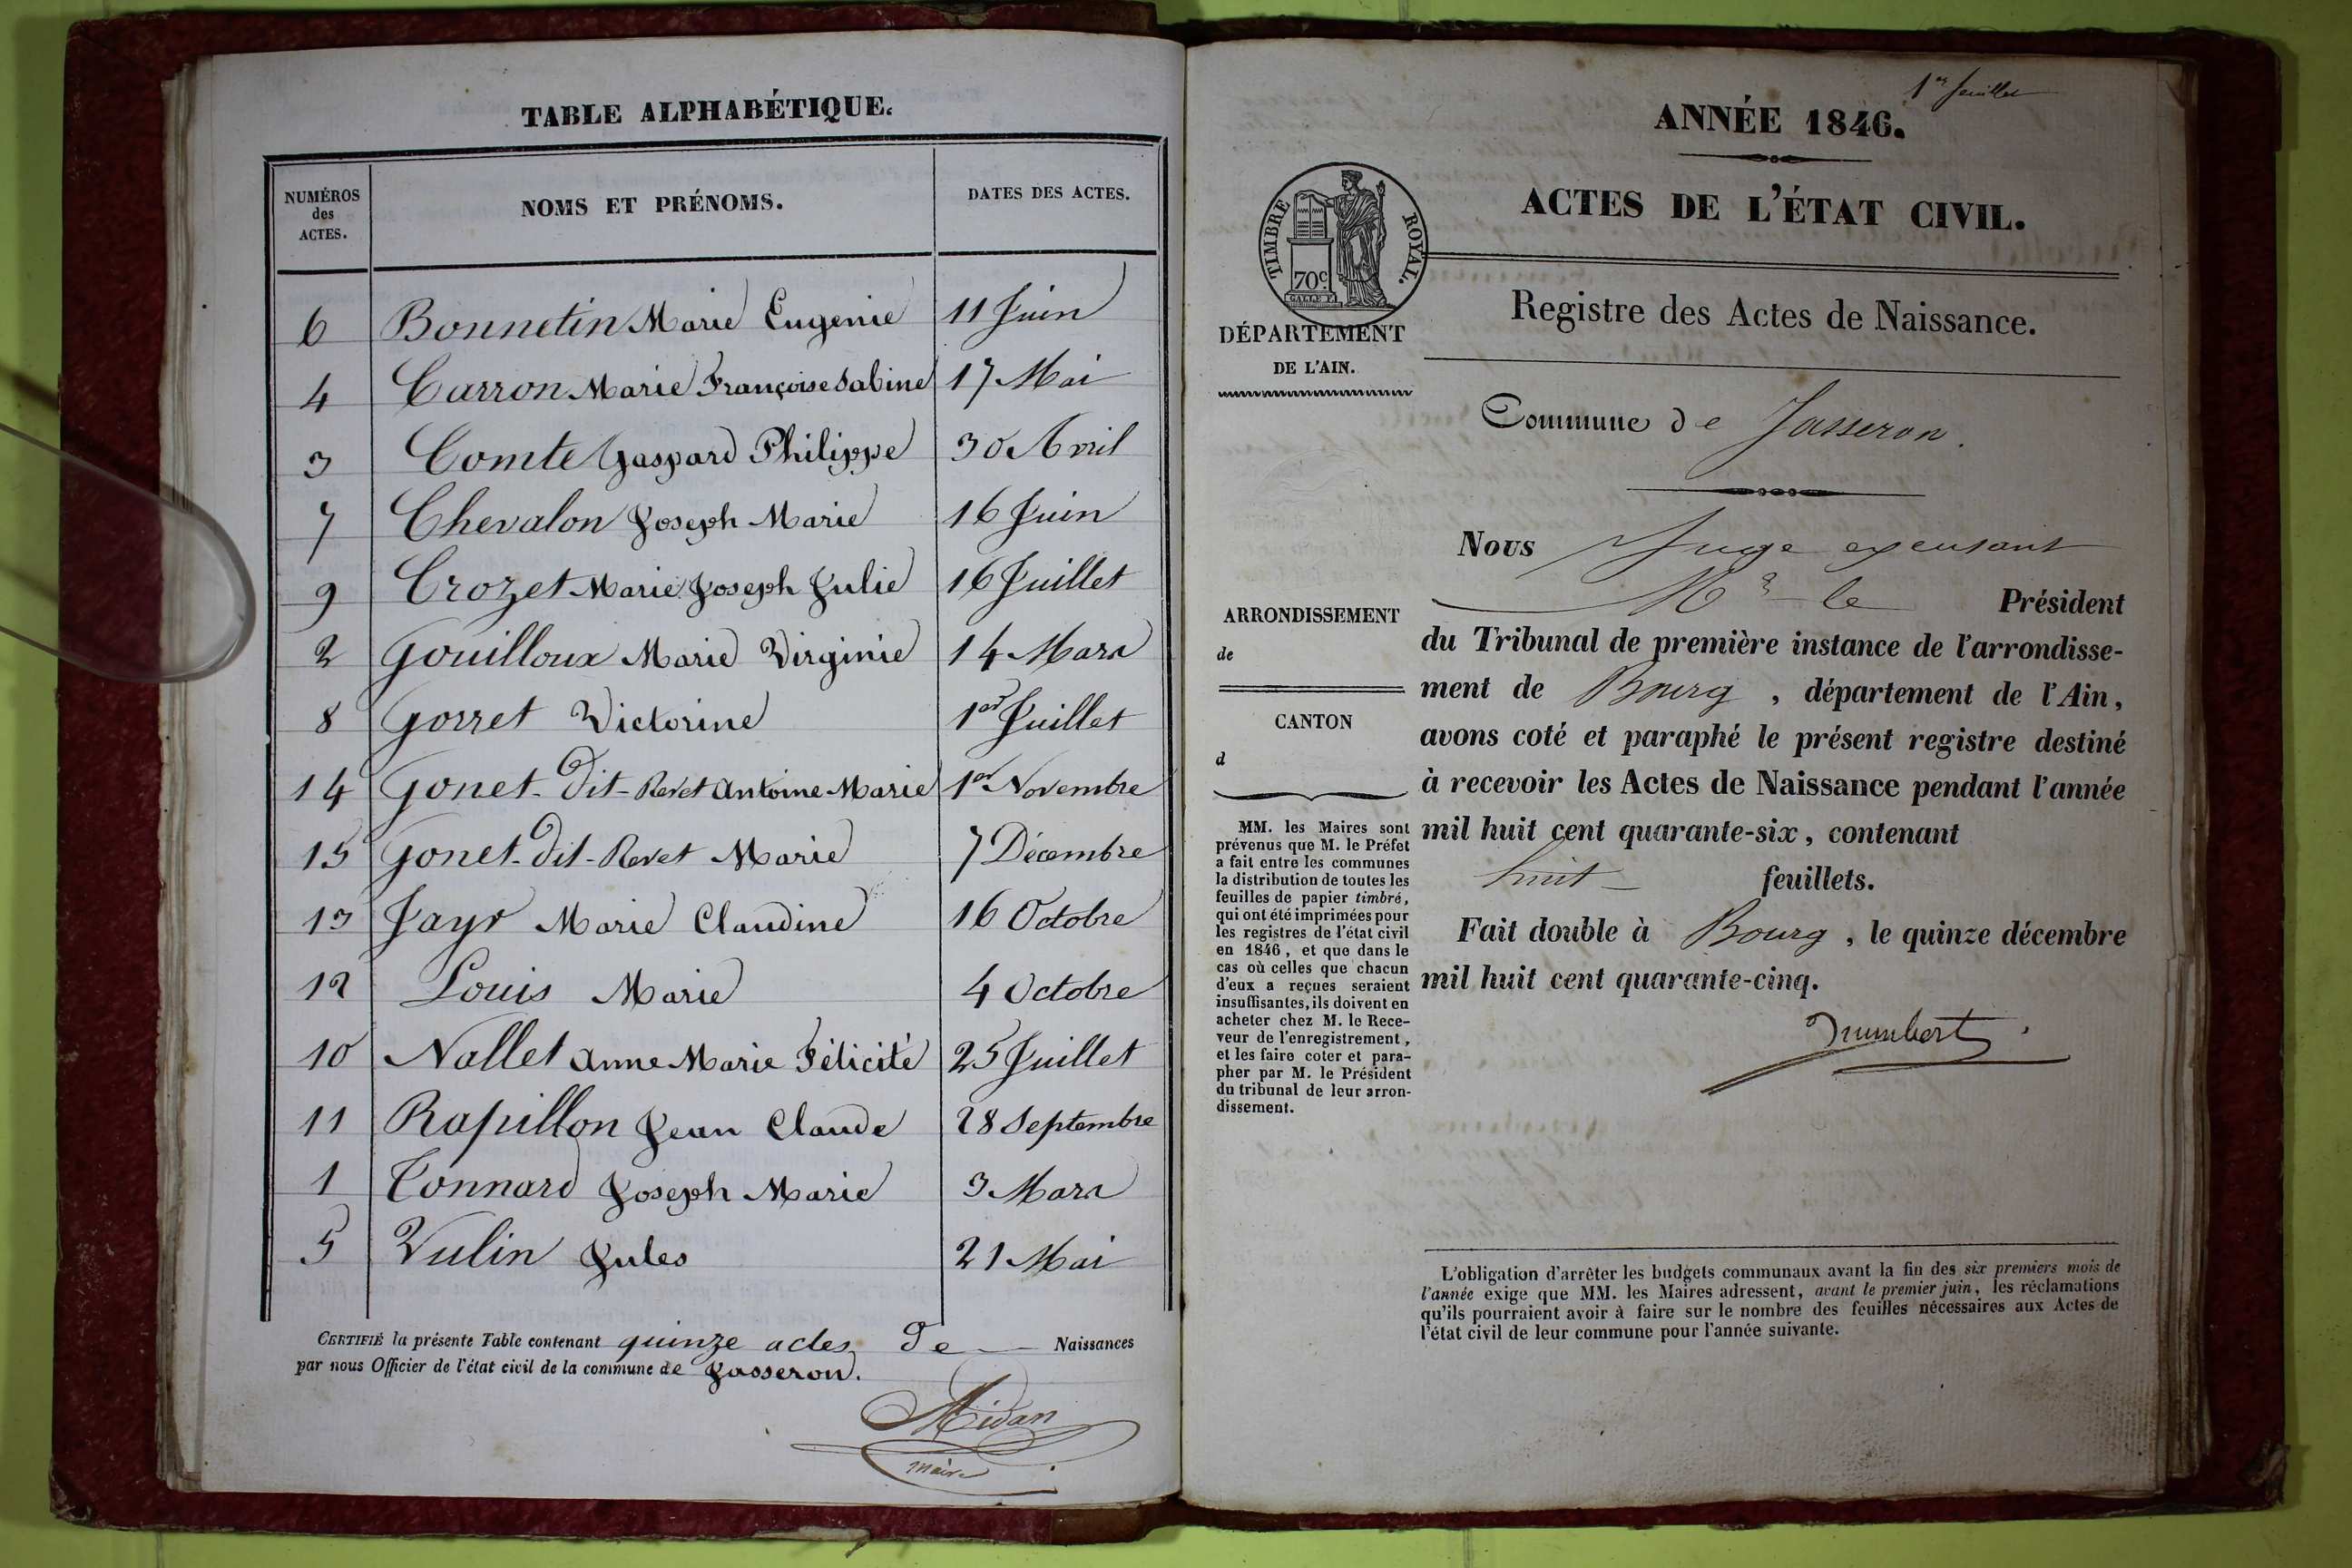 TABLE ALPHABÉTIQUE.
NUMÉROS
des
ACTES.
NOMS ET PRÉNOMS.
DATES DES ACTES.
6 Bonnetin Marie Eugenie 11 Juin
4 Carron Marie Françoise Sabine 17 Mai
3 Comte Gaspard Philippe 30 Avril
7 Chevalon Joseph Marie 16 Juin
9 Crozet Marie Joseph Julie 16 Juillet
2 Gouilloux Marie Virginie 14 Mars
8 Gorret Victorine 1er Juillet
14 Gonet-Dit-Revet Antoine Marie 1er Novembre
15 Gonet-Dit-Revet Marie 7 Décembre
13 Jayr Marie Claudine 16 Octobre
12 Louis Marie 4 Octobre
10 Nallet Anne Marie Félicité 25 Juillet
11 Rapillon Jean Claude 28 Septembre
1 Tonnard Joseph Marie 3 Mars
5 Vulin Jules 21 Mai
CERTIFIÉ la présente Table contenant quinze actes de Naissances
par nous Officier de l'état civil de la commune de Jasseron.
Midan
maire
1er feuillet
ANNÉE 1846.
ACTES DE L'ÉTAT CIVIL.
TIMBRE ROYAL.
70c
DÉPARTEMENT
DE L'AIN.
Registre des Actes de Naissance.
Commune de Jasseron.
Nous Juge excusant
Mr le Président
du Tribunal de première instance de l'arrondisse-
ment de Bourg, département de l'Ain,
avons coté et paraphé le présent registre destiné
à recevoir les Actes de Naissance pendant l'année
mil huit cent quarante-six, contenant
huit feuillets.
Fait double à Bourg, le quinze décembre
mil huit cent quarante-cinq.
ARRONDISSEMENT
de
CANTON
d
MM. les Maires sont
prévenus que M. le Préfet
a fait entre les communes
la distribution de toutes les
feuilles de papier timbré,
qui ont été imprimées pour
les registres de l'état civil
en 1846, et que dans le
cas où celles que chacun
d'eux a reçues seraient
insuffisantes, ils doivent en
acheter chez M. le Rece-
veur de l'enregistrement,
et les faire coter et para-
pher par M. le Président
du tribunal de leur arron-
dissement.
L'obligation d'arrêter les budgets communaux avant la fin des six premiers mois de
l'année exige que MM. les Maires adressent, avant le premier juin, les réclamations
qu'ils pourraient avoir à faire sur le nombre des feuilles nécessaires aux Actes de
l'état civil de leur commune pour l'année suivante.